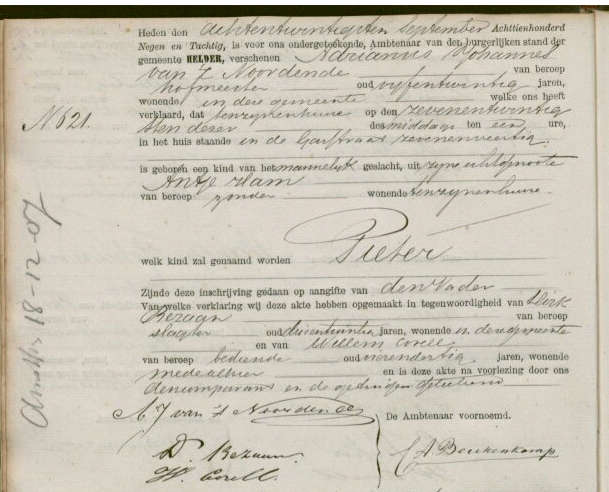 Heden den achtentwintigsten September Achttienhonderd
Negen en Tachtig, is voor ons ondergeteekende, Ambtenaar van den burgerlijken stand der
gemeente HELDER, verschenen Adrianus Johannes
van 't Noordende van beroep
hofmeester oud vyfentwintig jaren,
wonende in deze gemeente welke ons heeft
verklaard, dat tenzynenhuize op den zevenentwintig
sten dezer des middags ten een ure,
N. 621.
in het huis staande in de zevenenveertig
is geboren een kind van het mannelyk geslacht, uit zyne echtgenoote
Antje Ham
van beroep zonder wonende tenzynenhuize
welk kind zal genaamd worden Pieter
Zijnde deze inschrijving gedaan op aangifte van den Vader
Van welke verklaring wij deze akte hebben opgemaakt in tegenwoordigheid van Dirk
Bezaan van beroep
slagter oud jaren, wonende in deze gemeente
en van Willem Corell
van beroep bediende oud jaren, wonende
mede alhier en is deze akte na voorlezing door ons
den comparant en de getuigen geteekend
A J van 't Noordende
De Ambtenaar voornoemd.
D. Bezaan
W. Corell.
18-12-07